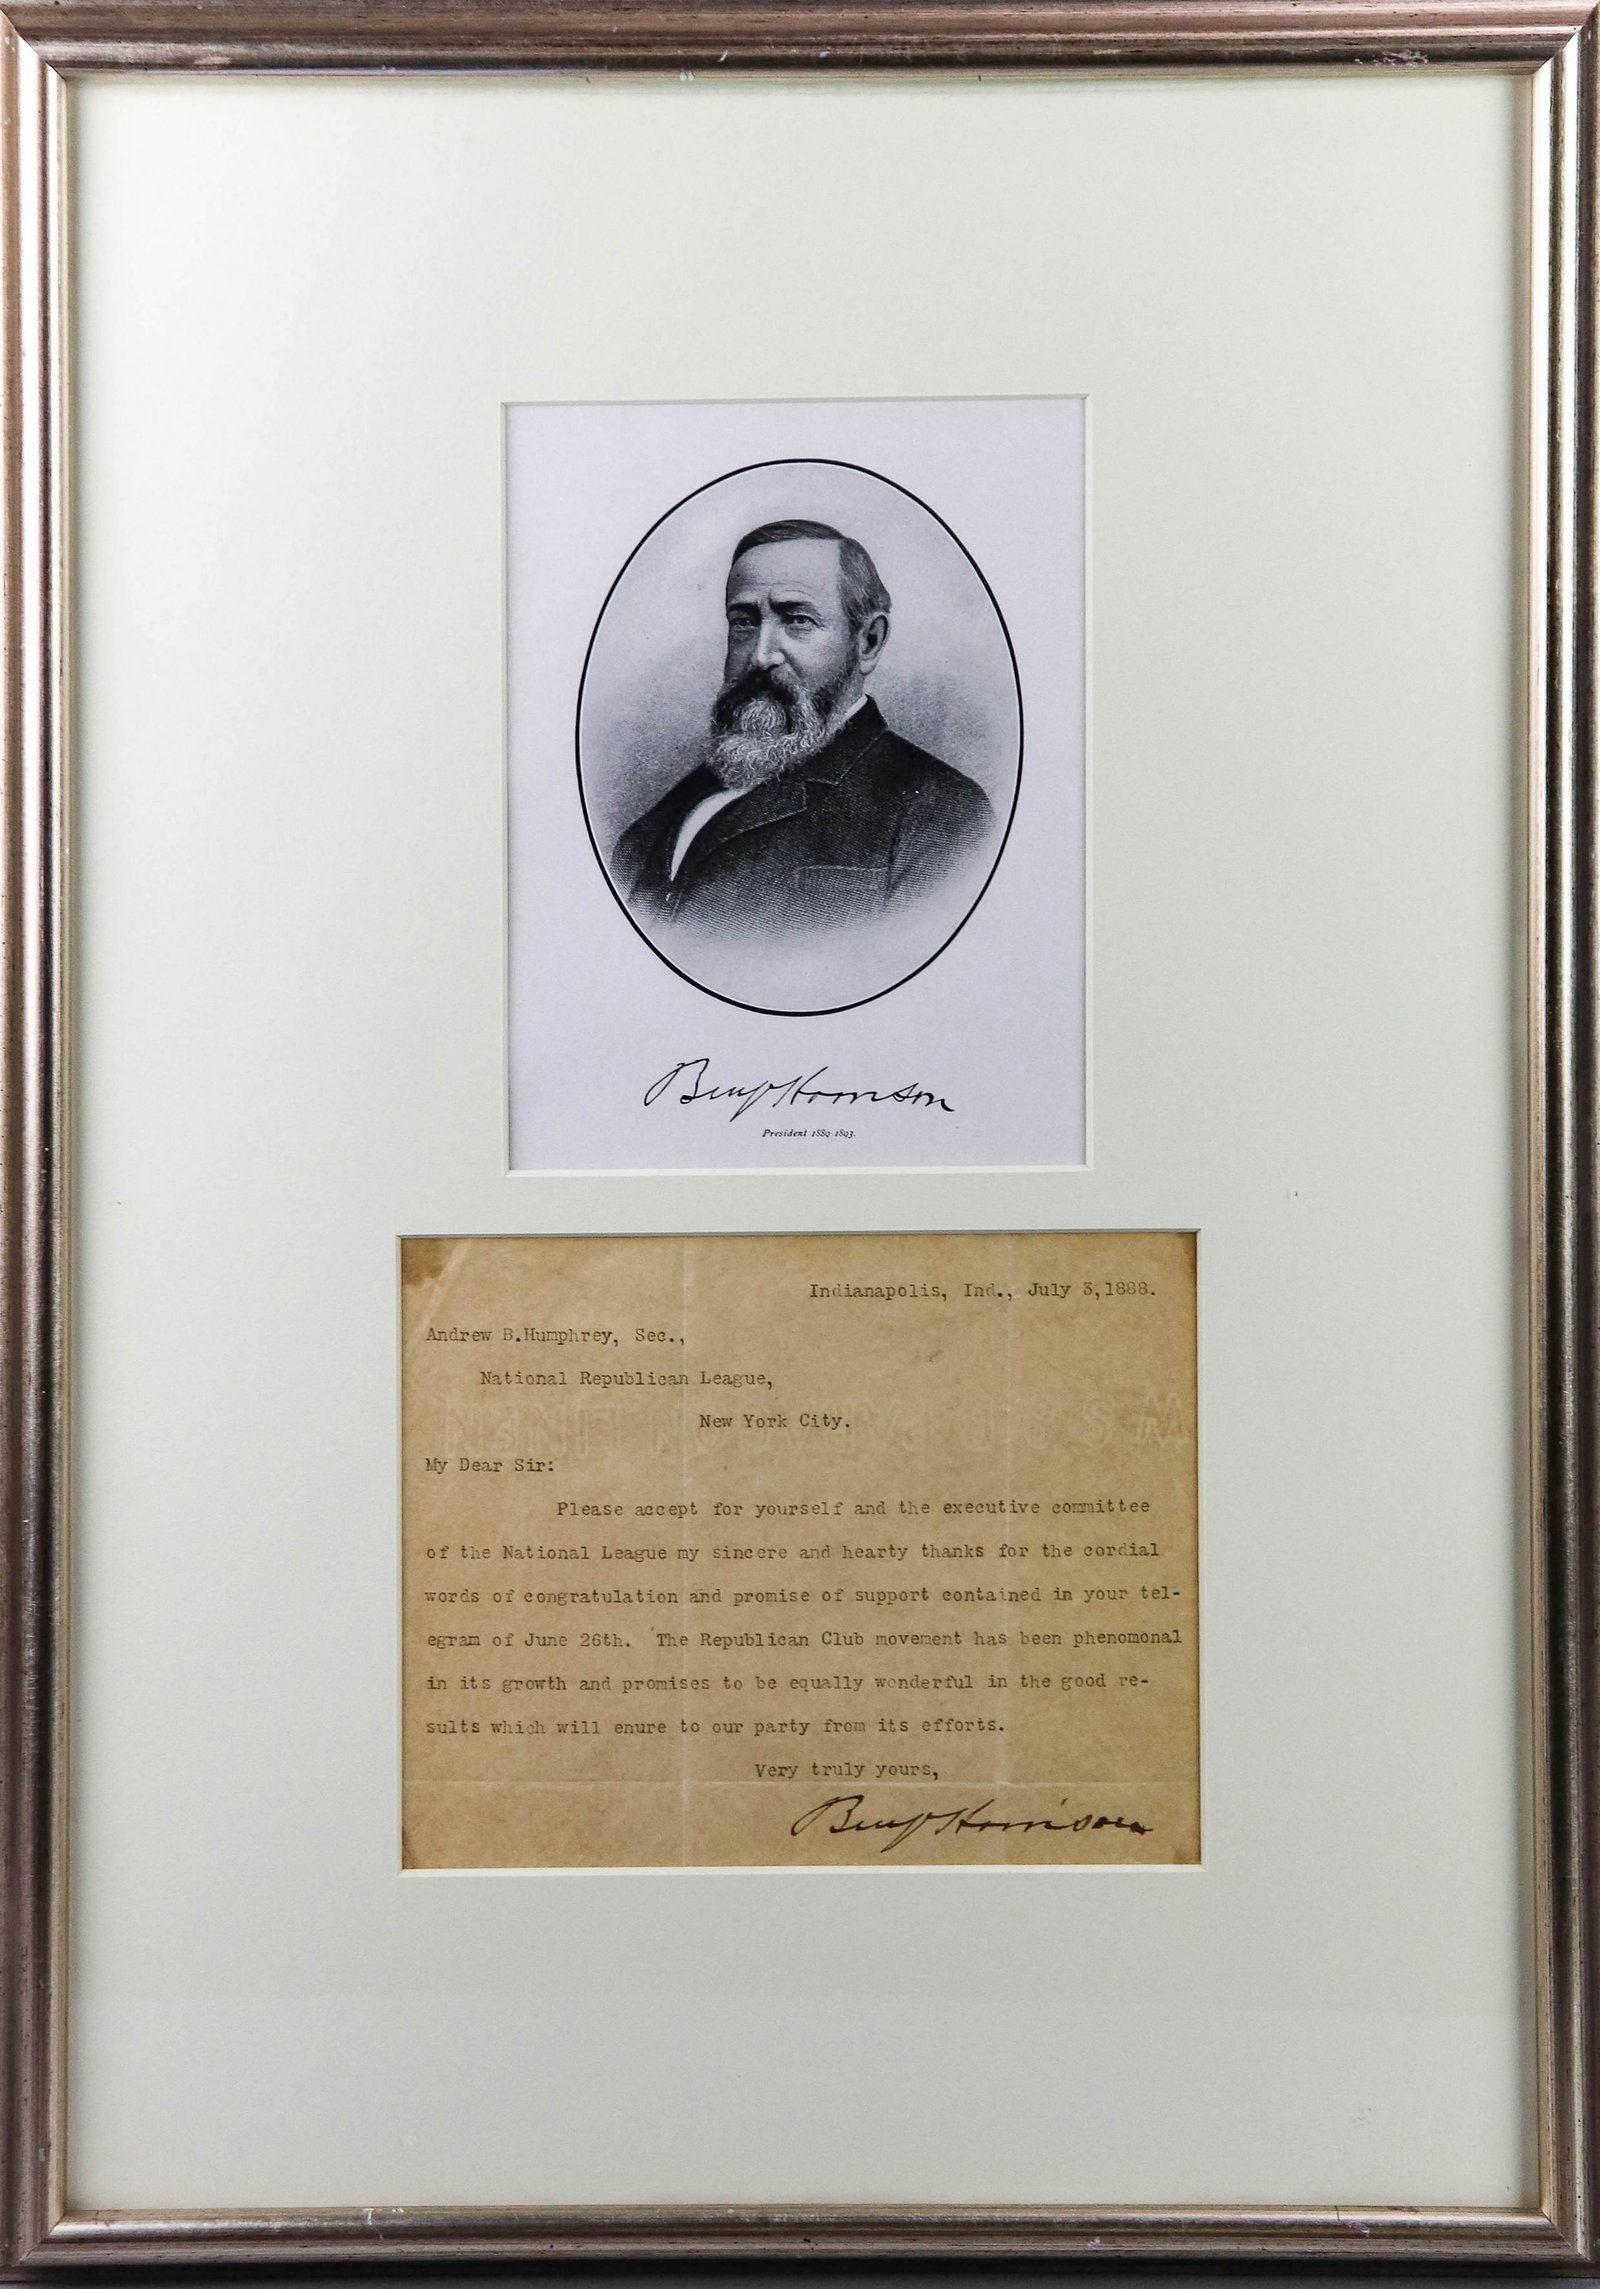 Benj Harrison
President 1889-1893.
Indianapolis, Ind., July 3,1888.
Andrew B.Humphrey, Sec.,
National Republican League,
New York City.
My Dear Sir:
Please accept for yourself and the executive committee
of the National League my sincere and hearty thanks for the cordial
words of congratulation and promise of support contained in your tel-
egram of June 26th. The Republican Club movement has been phenomonal
in its growth and promises to be equally wonderful in the good re-
sults which will enure to our party from its efforts.
Very truly yours,
Benj Harrison